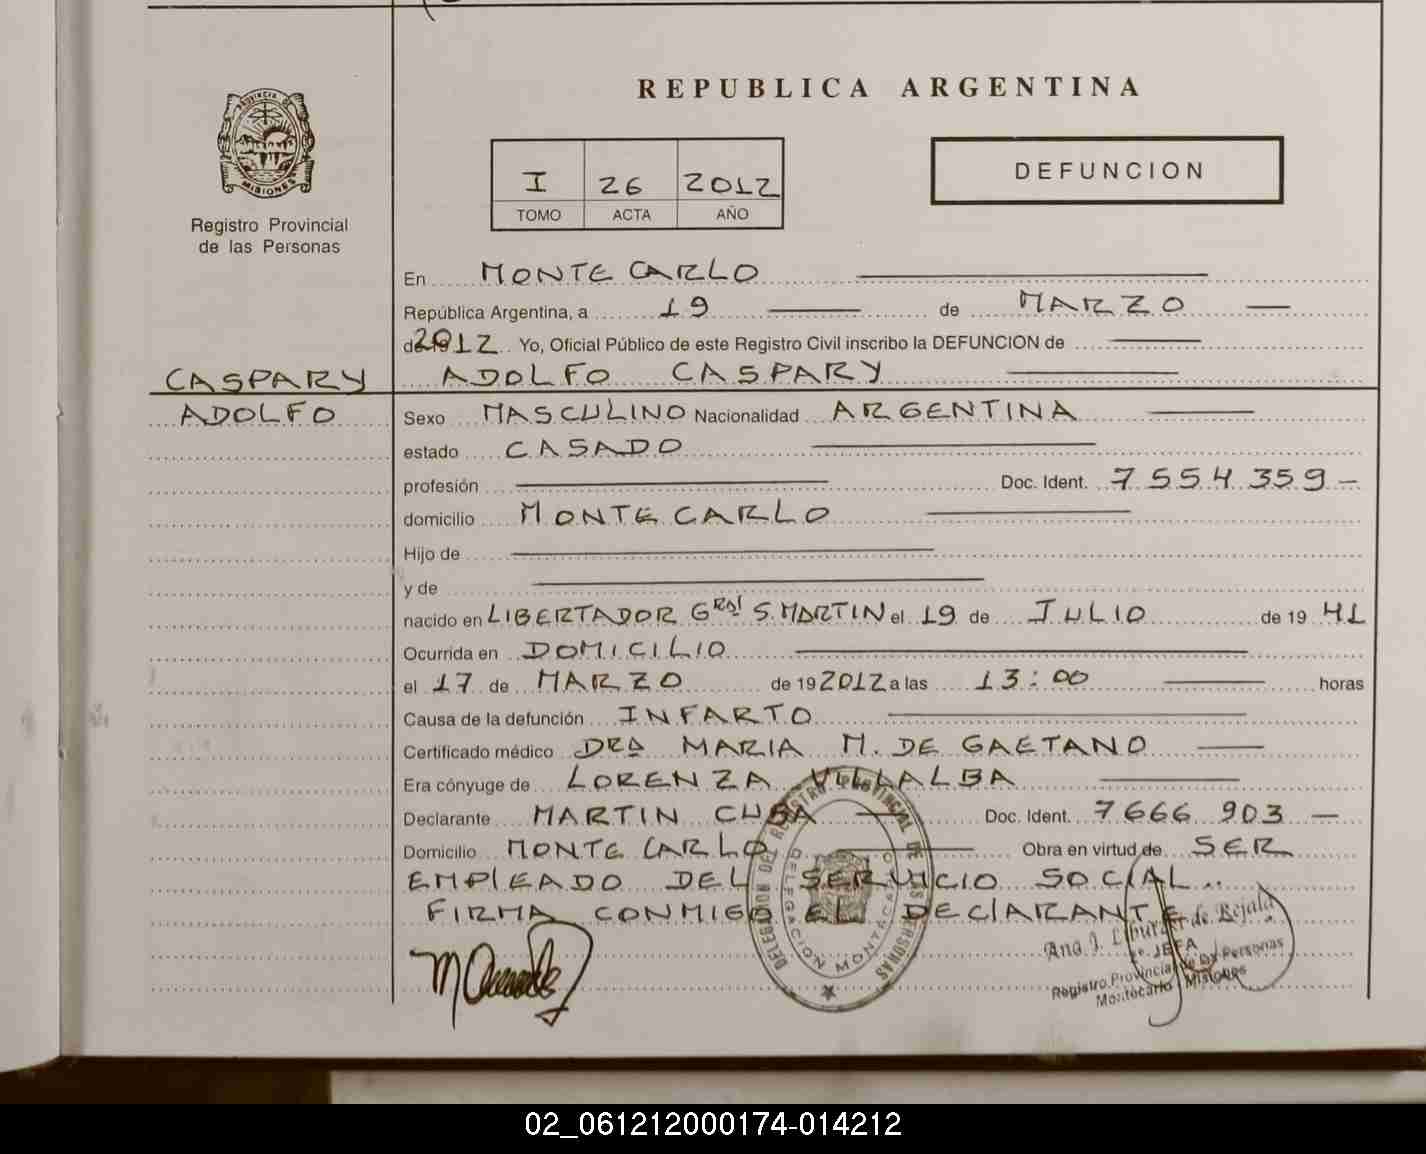 REPUBLICA ARGENTINA
PROVINCIA DE
MISIONES
Registro Provincial
de las Personas
I 26 2012
TOMO ACTA AÑO
DEFUNCION
En MONTE CARLO
República Argentina, a 19 de MARZO
de 2012 Yo, Oficial Público de este Registro Civil inscribo la DEFUNCION de
CASPARY
ADOLFO
ADOLFO CASPARY
Sexo MASCULINO Nacionalidad ARGENTINA
estado CASADO
profesión Doc. Ident. 7 554 359-
domicilio MONTE CARLO
Hijo de
y de
nacido en LIBERTADOR Gral S. MARTIN el 19 de JULIO de 19 41
Ocurrida en DOMICILIO
el 17 de MARZO de 19 2012 a las 13:00 horas
Causa de la defunción INFARTO
Certificado médico DRA MARIA M. DE GAETANO
Era cónyuge de LORENZA VILLALBA
Declarante MARTIN Doc. Ident. 7666 903 -
Domicilio MONTE CARLO Obra en virtud de SER
EMPLEADO DEL SERVICIO SOCIAL..
FIRMA CONMIGO EL DECLARANTE
DELEGACION DEL REGISTRO PROVINCIAL DE LAS PERSONAS
DELEGACION MONTECARLO
Ana J. de Bejala
JEFA
Registro Provincial de las Personas
Montecarlo - Misiones
02_061212000174-014212